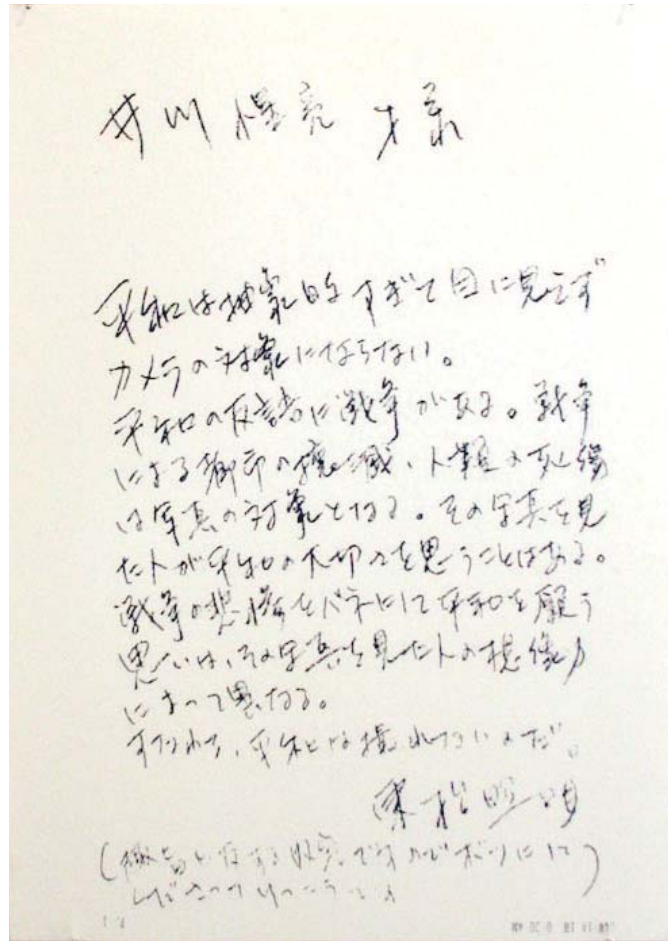 井川惺亮 様
平和は抽象的すぎて目に見えず
カメラの対象にならない。
平和の反語に戦争がある。戦争
による都市の壊滅、人類の死傷
は写真の対象となる。その写真を見
た人が平和の大切さを思うことはある。
戦争の悲惨をバネにして平和を願う
思いは、その写真を見た人の想像力
によって異なる。
すなわち、平和は撮れないのだ。
東松照明
(趣旨に反する ですのでボツにして
くださってけっこうです)